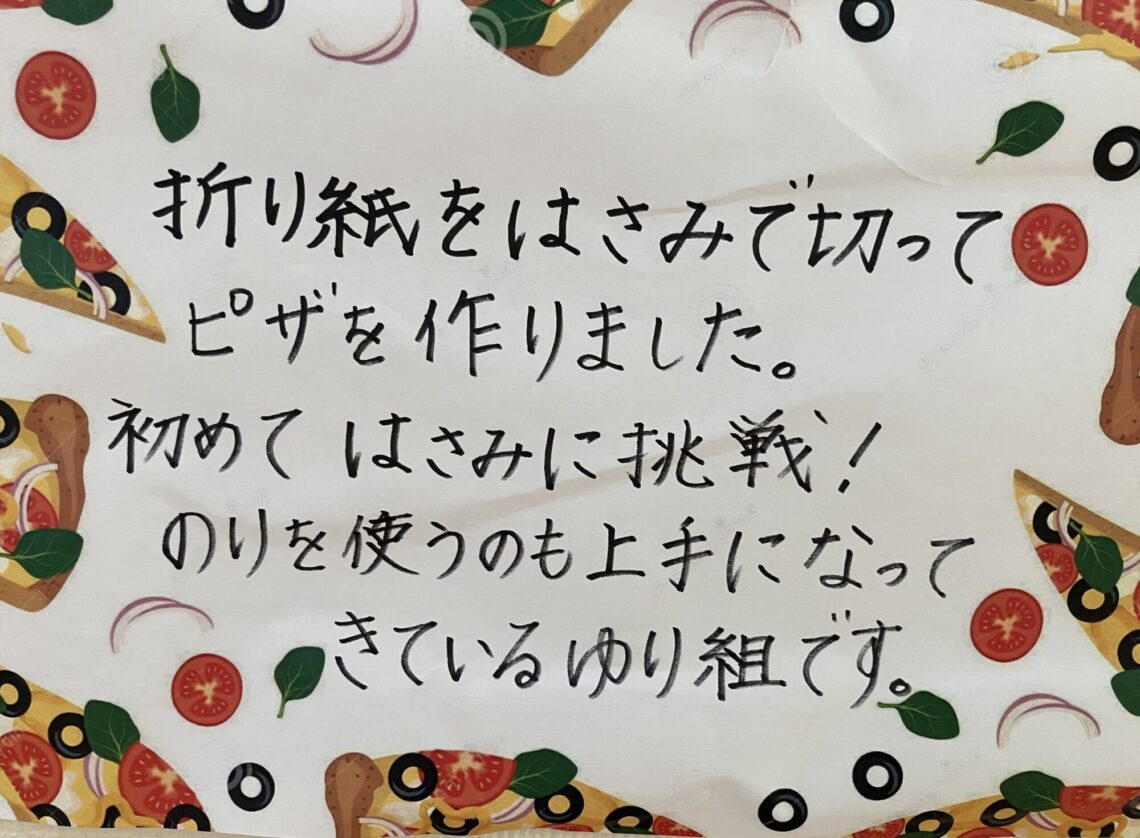 折り紙をはさみで切って
ピザを作りました。
初めてはさみに挑戦！
のりを使うのも上手になって
きているゆり組です。